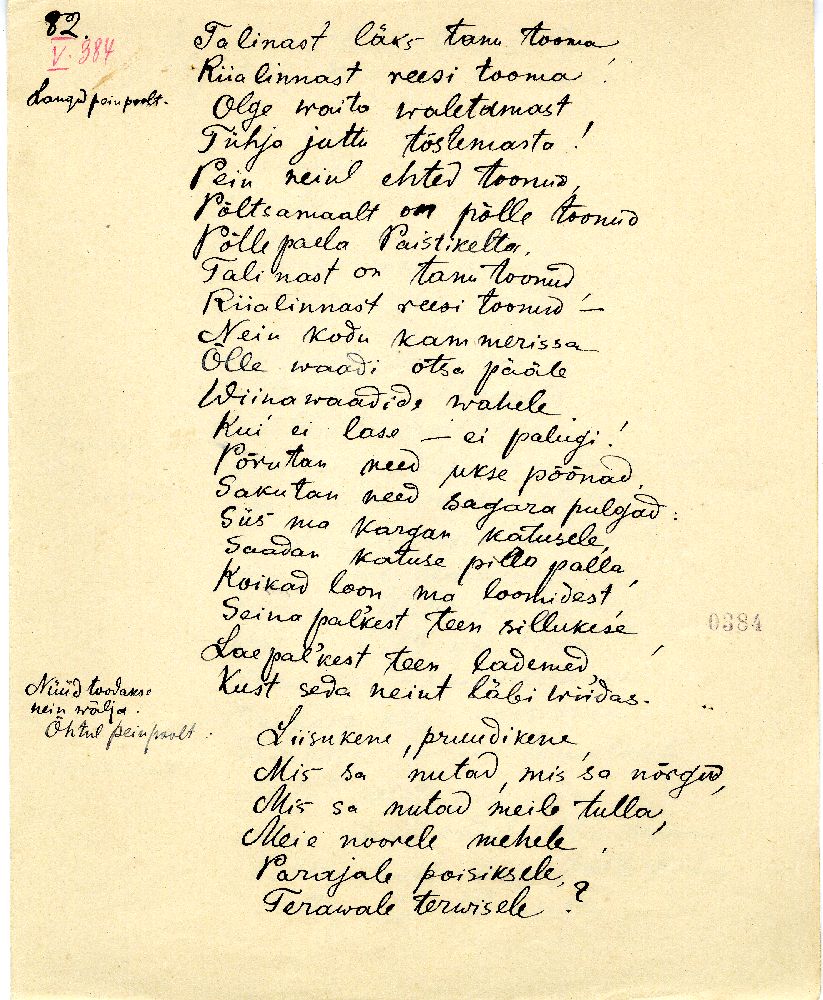 82.
V. 384
Talinast läks tanu tooma
Riialinnast reesi tooma!
Langud peiupoolt.
Olge waita waletamast
Tühja juttu tõstemasta!
Peiu neiul ehted toonud,
Põltsamaalt on põlle toonud
Põlle paela Paistikelta,
Talinast on tanu toonud,
Riialinnast reesi toonud –
Neiu kodu kammerissa
Õlle waadi otsa pääle
Wiinawaadide wahele
Kui ei lase – ei palugi!
Põrutan need ukse põõnad,
Sakutan need sagara pulgad:
Siis ma kargan katusele,
Saadan katuse pilla palla,
Koikad loon ma loomidest
Seina pal'kest teen sillukese,
0384
Lae pal'kest teen lademed,
Kust seda neiut läbi wiidas.
Nüüd toodakse
neiu wälja.
Õhtul peiupoolt:
Liisukene, pruudikene,
Mis sa nutad, mis sa nõrgud,
Mis sa nutad meile tulla,
Meie noorele mehele,
Parajale poisiksele,
Terawale terwisele?